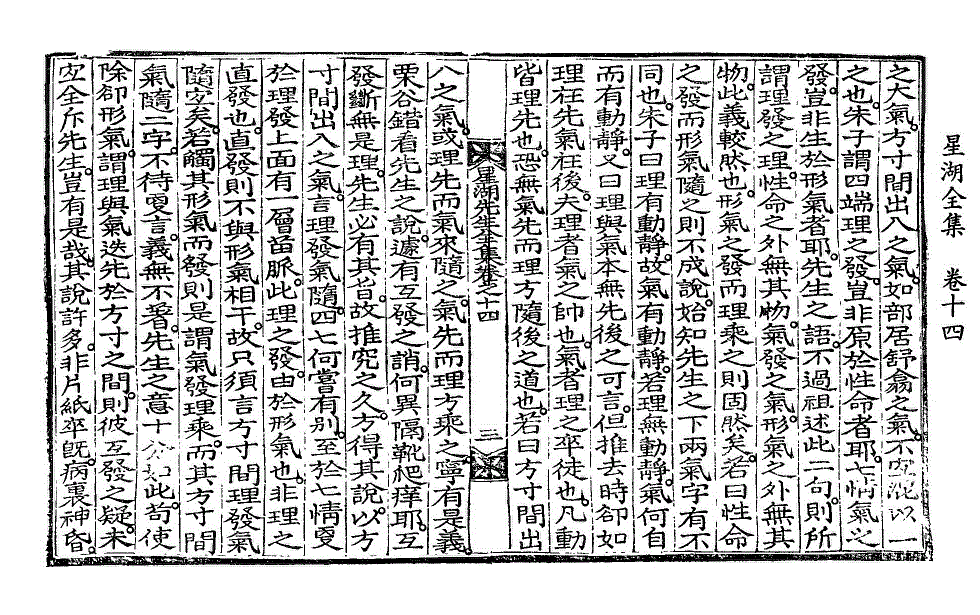 星湖全集　卷十四
之大氣。方寸間出入之氣。如部居舒翕之氣。不
之也。朱子謂四端理之發。豈非原於性命者耶。七情氣之
發。豈非生於形氣者耶。先生之語。不過祖述此二句。則所
謂理發之理。性命之外無其物。氣發之氣。形氣之外無其
物。此義較然也。形氣之發而理乘之則固然矣。若曰性命
之發而形氣隨之則不成說。始知先生之下兩氣字有不
同也。朱子曰理有動靜。故氣有動靜。若理無動靜。氣何自
而有動靜。又曰理與氣本無先後之可言。但推去時却如
理在先氣在後。夫理者氣之帥也。氣者理之卒徒也。凡動
皆理先也。恐無氣先而理方隨後之道也。若曰方寸間出
星湖先生全集卷之十四
三
入之氣。或理先而氣來隨之。氣先而理方乘之。寧有是義。
栗谷錯看先生之說。遽有互發之誚。何異隔靴爬痒耶。互
發斷無是理。先生必有其旨。故推究之久。方得其說。以方
寸間出入之氣。言理發氣隨。四七何嘗有別。至於七情。更
於理發上面有一層苗脈。此理之發。由於形氣也。非理之
直發也。直發則不與形氣相干。故只須言方寸間理發氣
隨空矣。若觸其形氣而發則是謂氣發理乘。而其方寸間
氣隨二字。不待更言。義無不著。先生之意十分如此。苟使
除卻形氣。謂理與氣迭先於方寸之間。則彼互發之疑。未
空全斥。先生豈有是哉。其說許多。非片紙卒旣。病裏神昏。